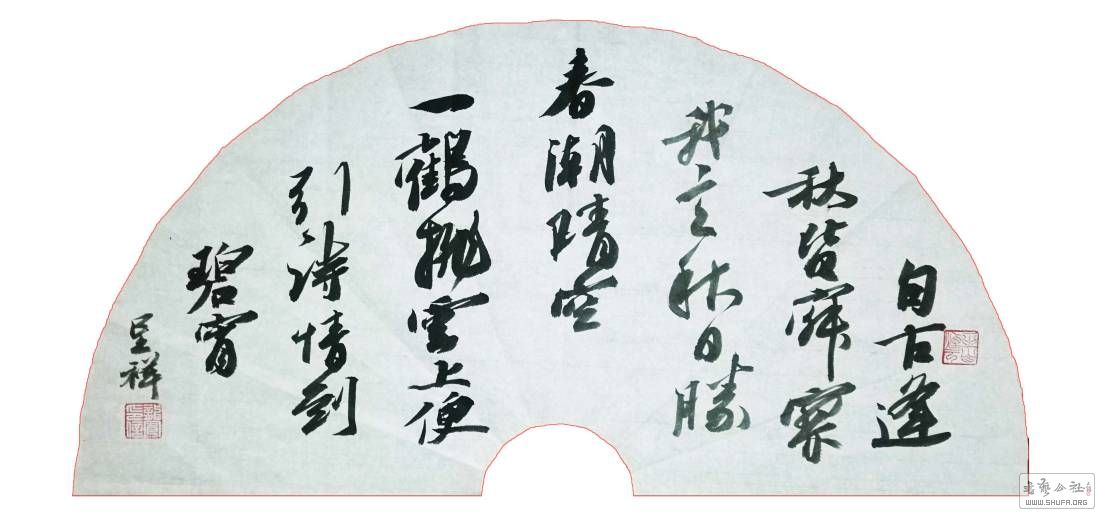 自古逢
秋皆寂寥
我言秋日勝
春潮晴空
一鶴排雲上便
引詩情到
碧宵
呈祥
书艺公社
WWW.SHUFA.ORG